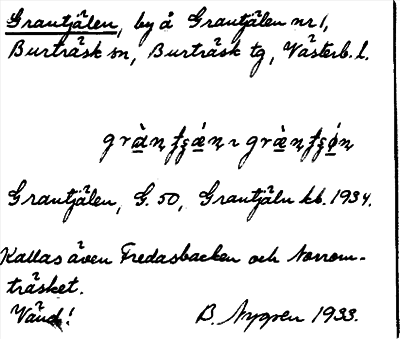 Grantjälen, by å Grantjälen nr 1,
Burträsk sn, Burträsk tg, Västerb. l.
Grantjälen, G. 50, Grantjäln kb. 1934.
Kallas även Fredasbacken och Norrom-
träsket.
Vänd! B. Nygren 1933.